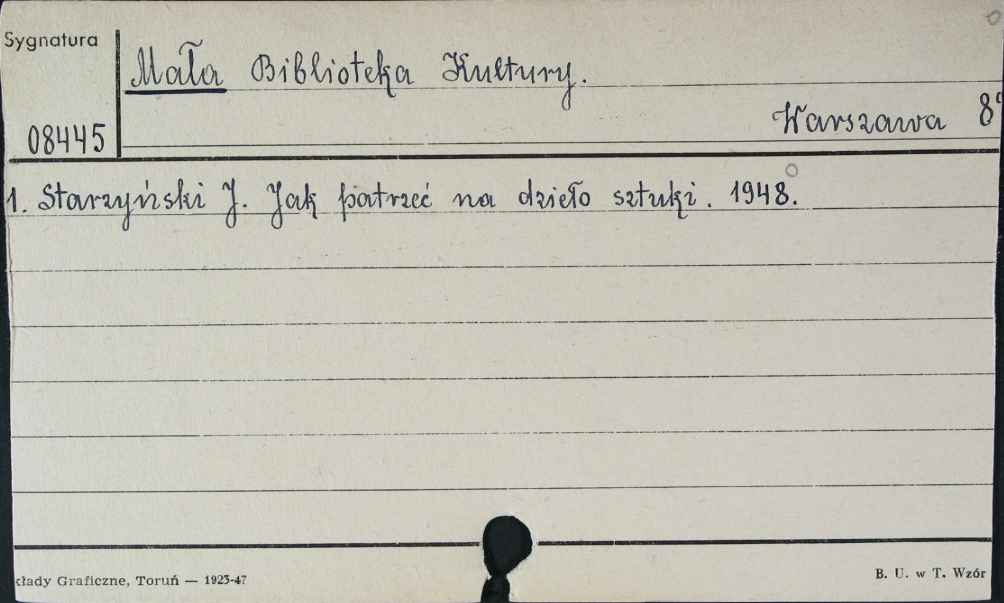 Sygnatura
Mała Biblioteka Kultury.
Warszawa 8°
08445
1. Starzyński J. Jak patrzeć na dzieło sztuki. 1948.
kłady Graficzne, Toruń — 1923-47
B. U. w T. Wzór